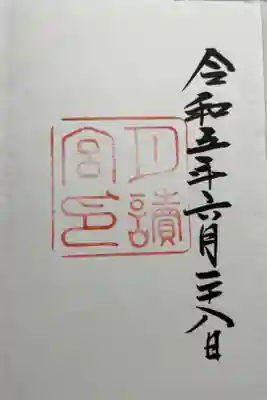 令和五年六月二十八日
月讀
宮印